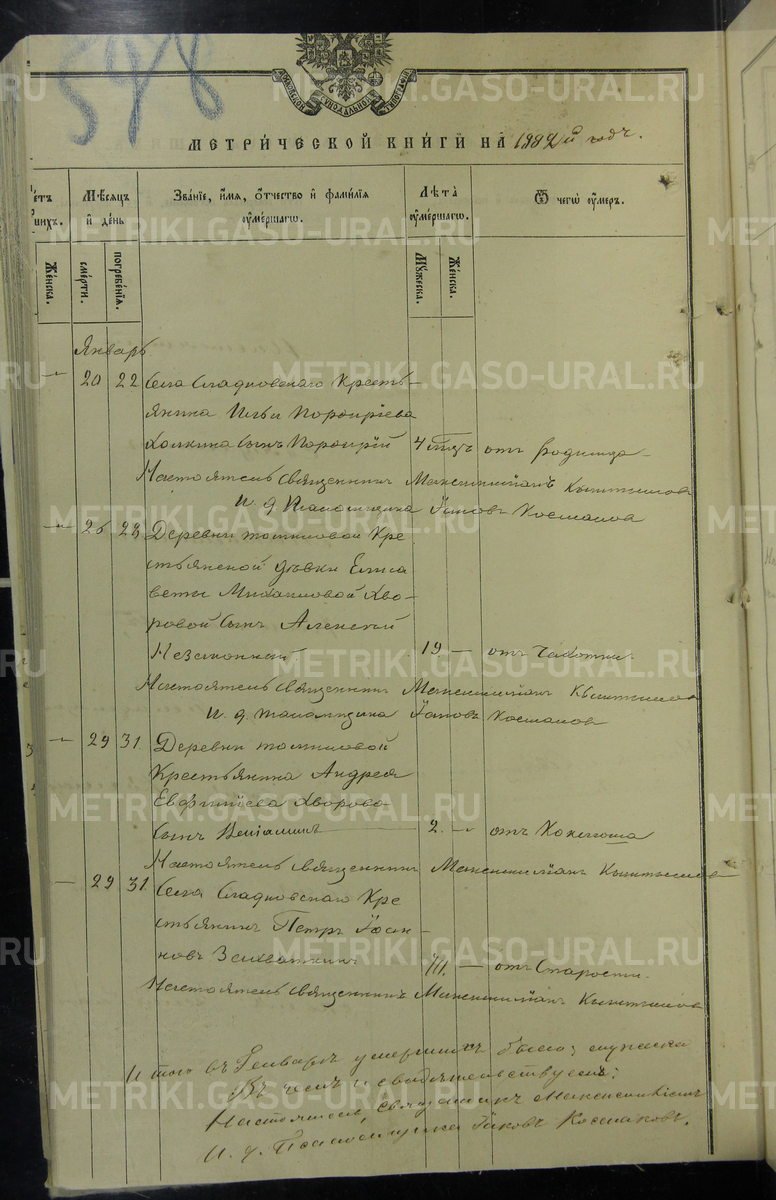 598
МЕТРИЧЕСКОЙ КНИГИ НА 1882й годъ.
Мѣсяцъ и день
Званіе, имя, отчество и фамилія умершаго.
Лѣта умершаго.
Отъ чего умеръ.
Женска.
смерти.
погребенія.
Мужеска.
Женска.
Январь
20 22 Села Сладковскаго Кресть-
янина Ильи Порфиріева
сынъ Порфирій 4 отъ родимца
Настоятель священникъ Максимиліанъ
И. д. Псаломщика Іаковъ Космаковъ
26 28 Деревни Томиловой Кре
стьянской дѣвки Елиса
веты Михаиловой Хво-
ровой сынъ Алексѣй
Незаконный 19 — отъ Чахотки.
Настоятель священникъ Максимиліанъ
И. д. псаломщика Іаковъ Космаковъ
29 31 Деревни Томиловой
Крестьянина Андрея
Евфиміева Хворова
сынъ Веніаминъ 2. — отъ Коклюша
Настоятель священникъ Максимиліанъ
29 31 Села Сладковскаго Кре
стьянинъ Петръ Іоан-
новъ 71. — отъ Старости.
Настоятель священникъ Максимиліанъ
Итого въ Генварѣ умершихъ было: мужеска
Въ чемъ и свидѣтельствуемъ:
Настоятель, священникъ
И. д. Псаломщика Іаковъ Космаковъ.
METRIKI.GASO-URAL.RU